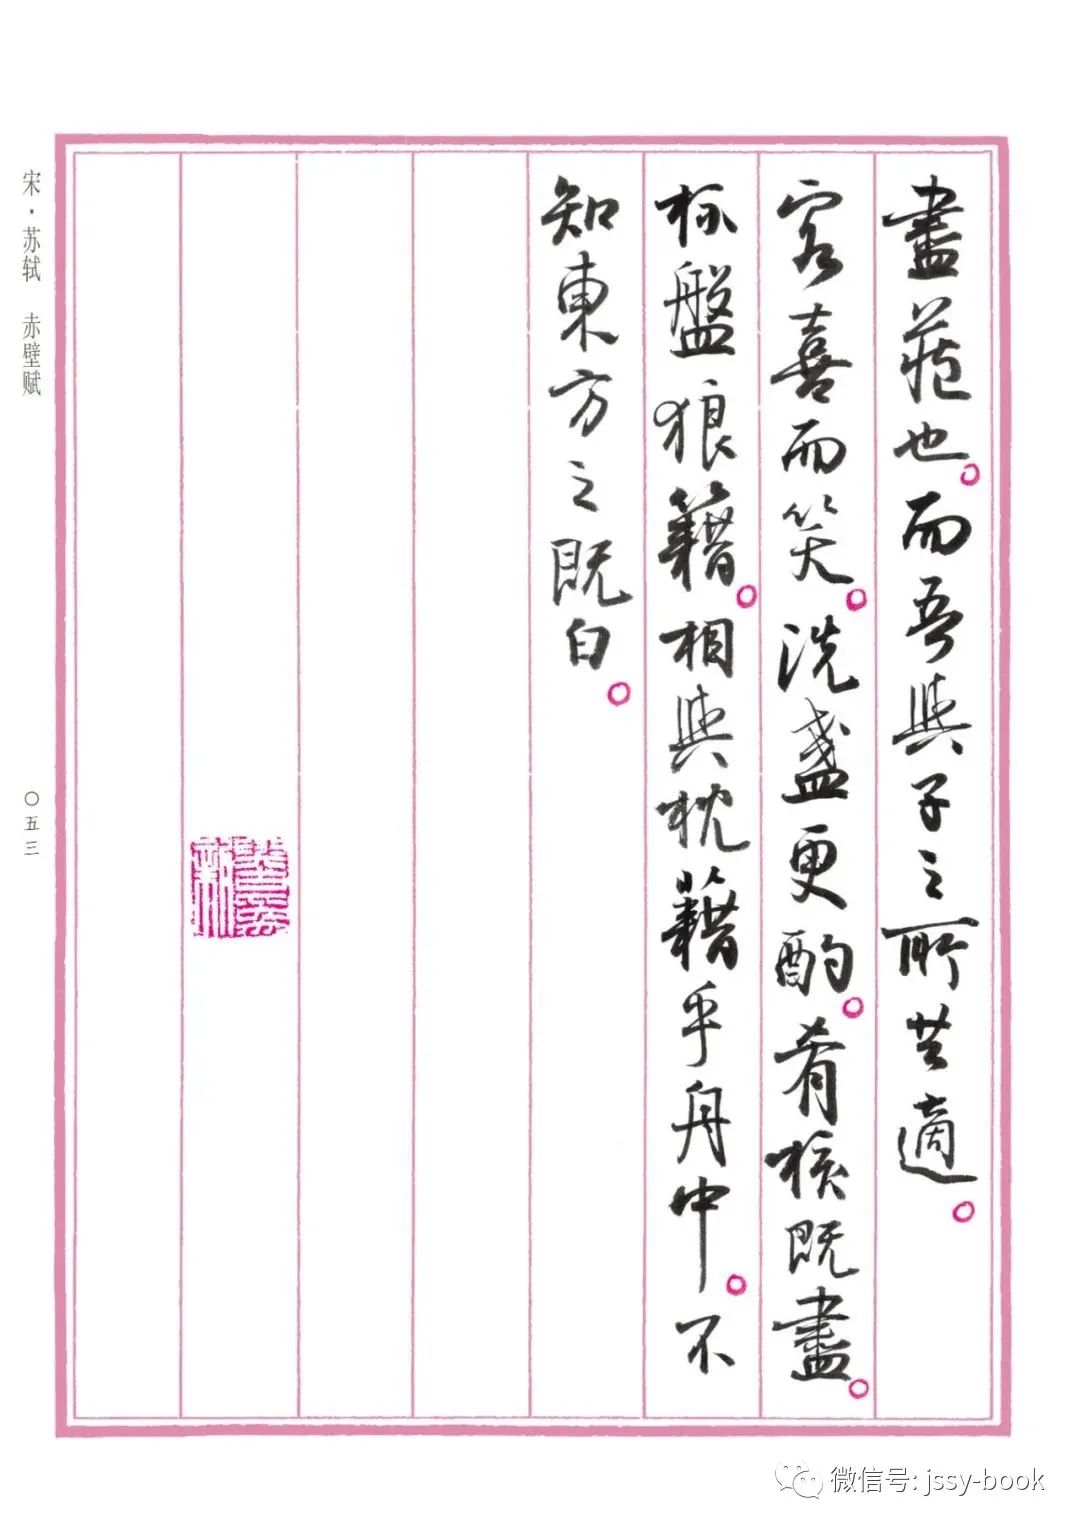 盡藏也。而吾與子之所共適。
客喜而笑。洗盞更酌。肴核既盡。
杯盤狼籍。相與枕藉乎舟中。不
知東方之既白。
宋·苏轼 赤壁赋
〇五三
微信号: jssy-book